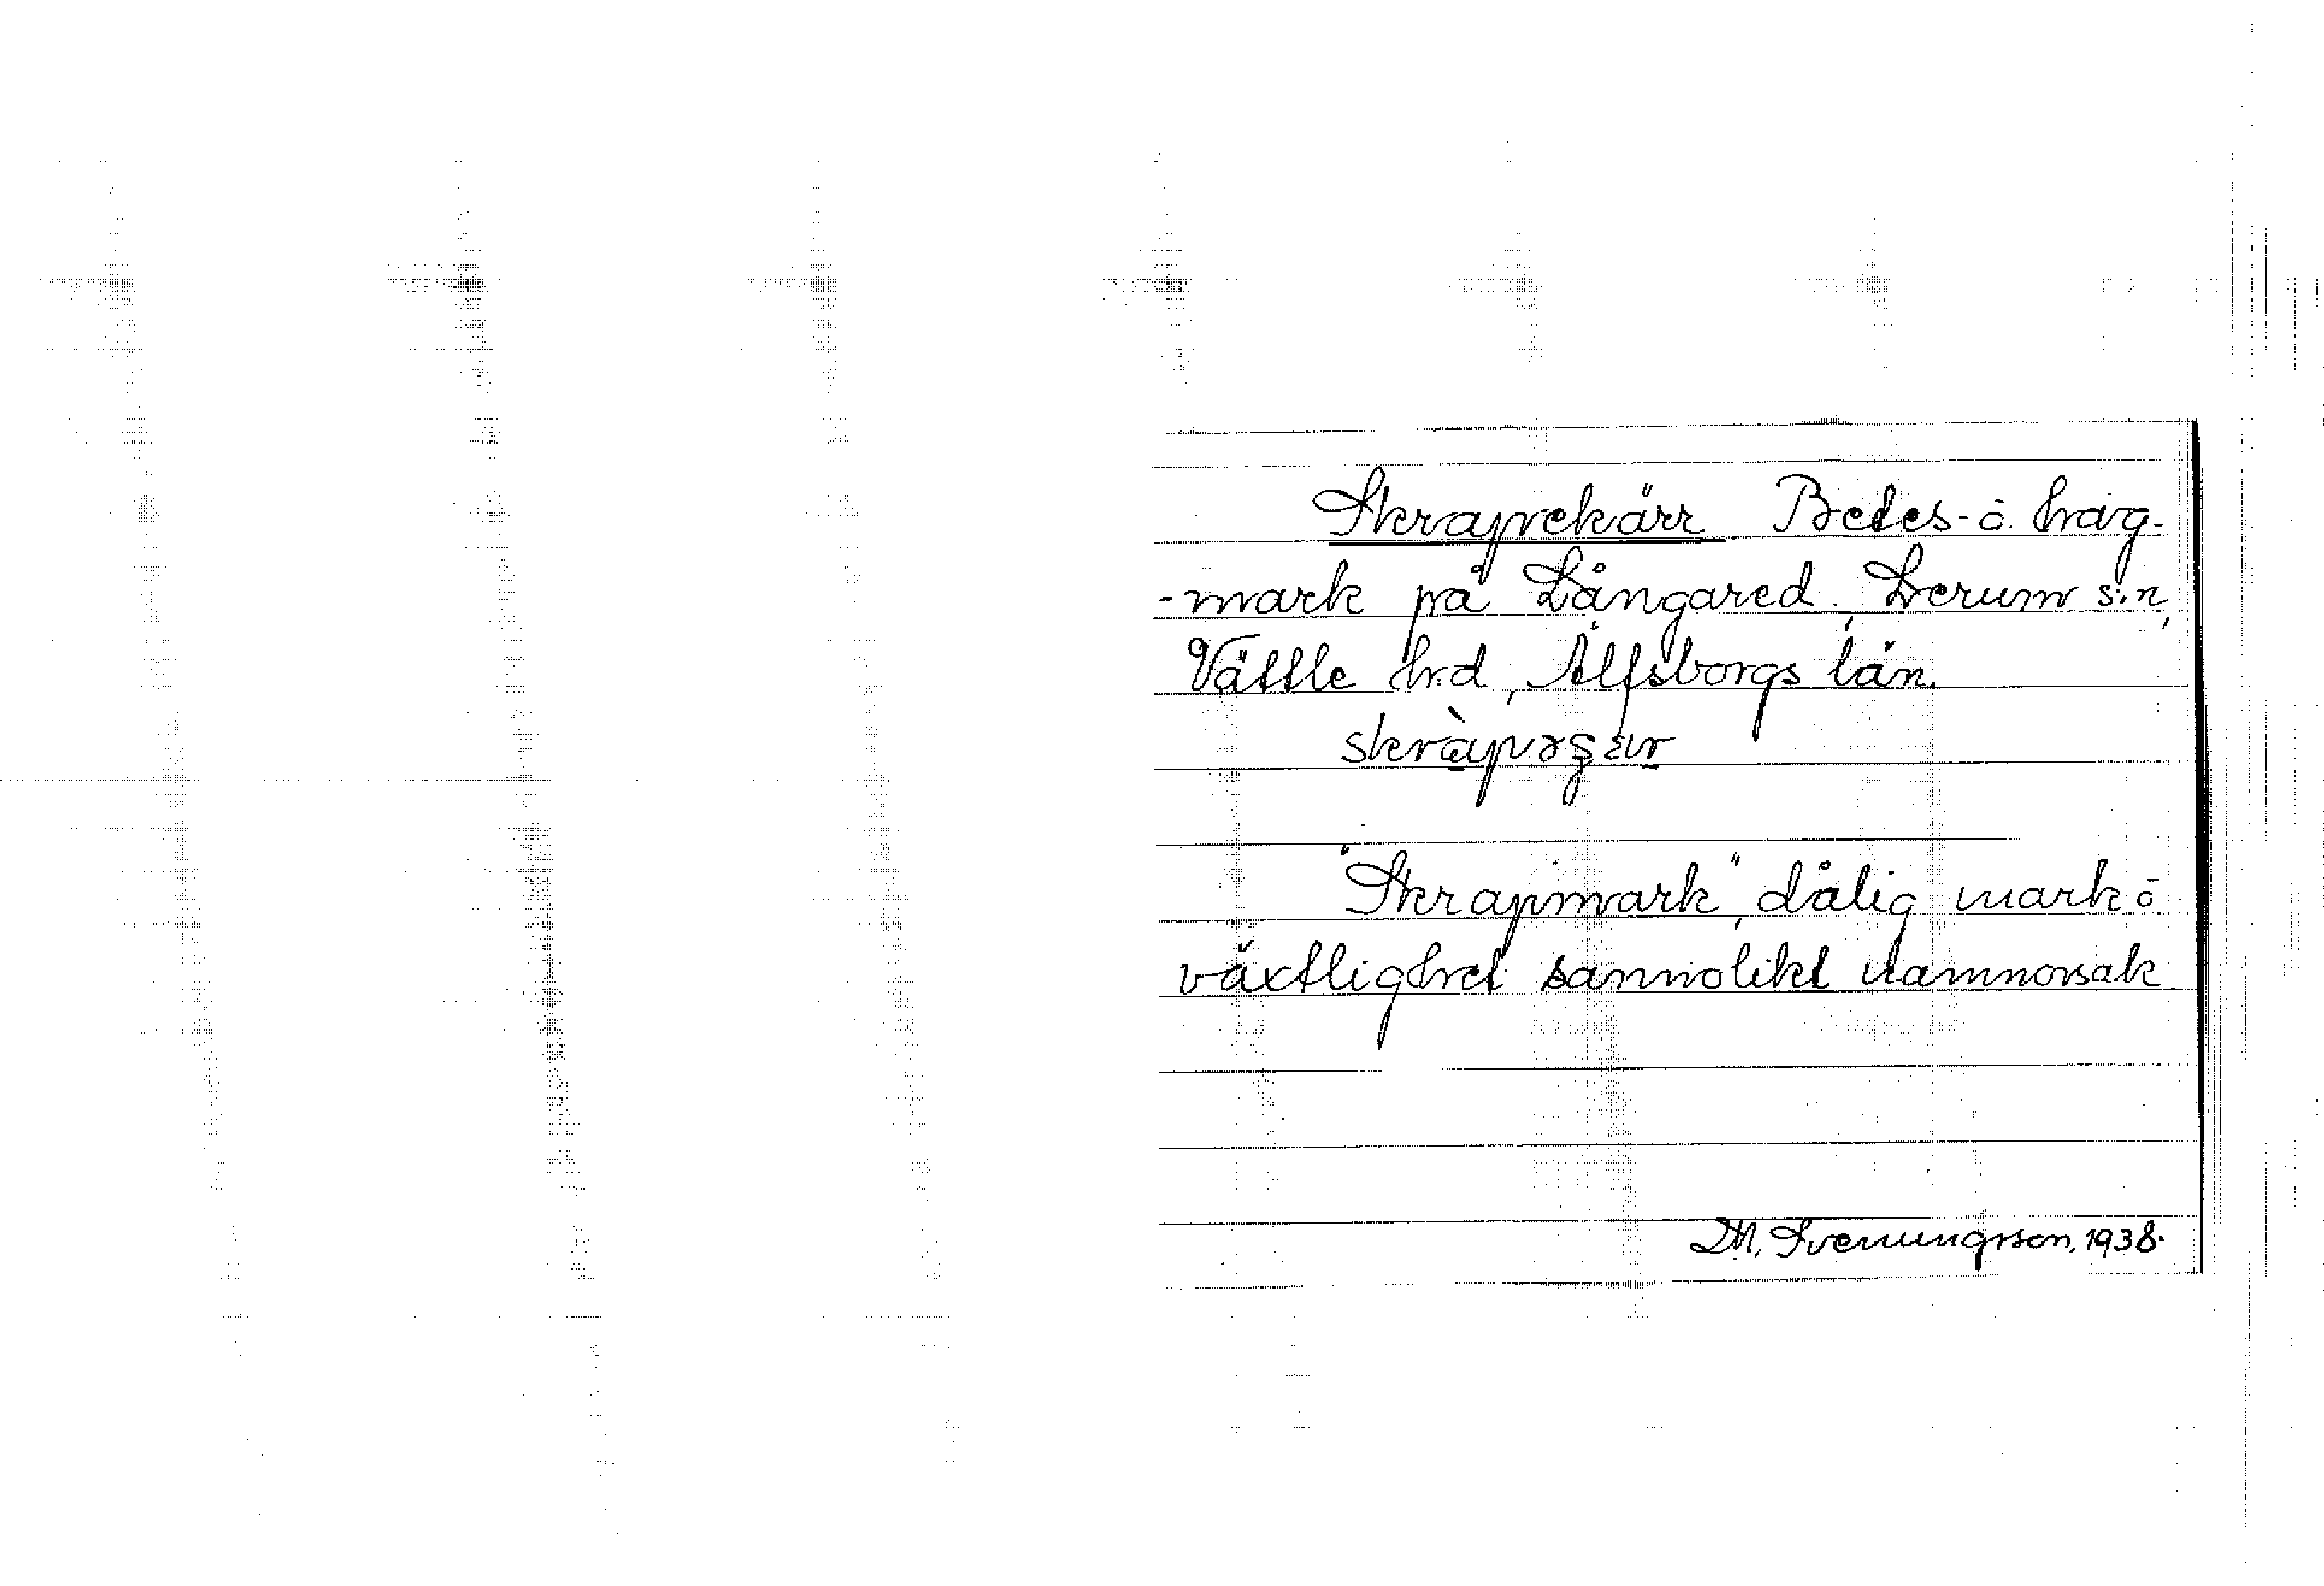 Skrapekärr Betes- o. hag-
-mark på Långared, Lerum s:n,
Vättle hd, Älfsborgs län.
"Skrapmark", dålig mark o
växtlighet sannolikt namnorsak
M. Svenungsson, 1938.